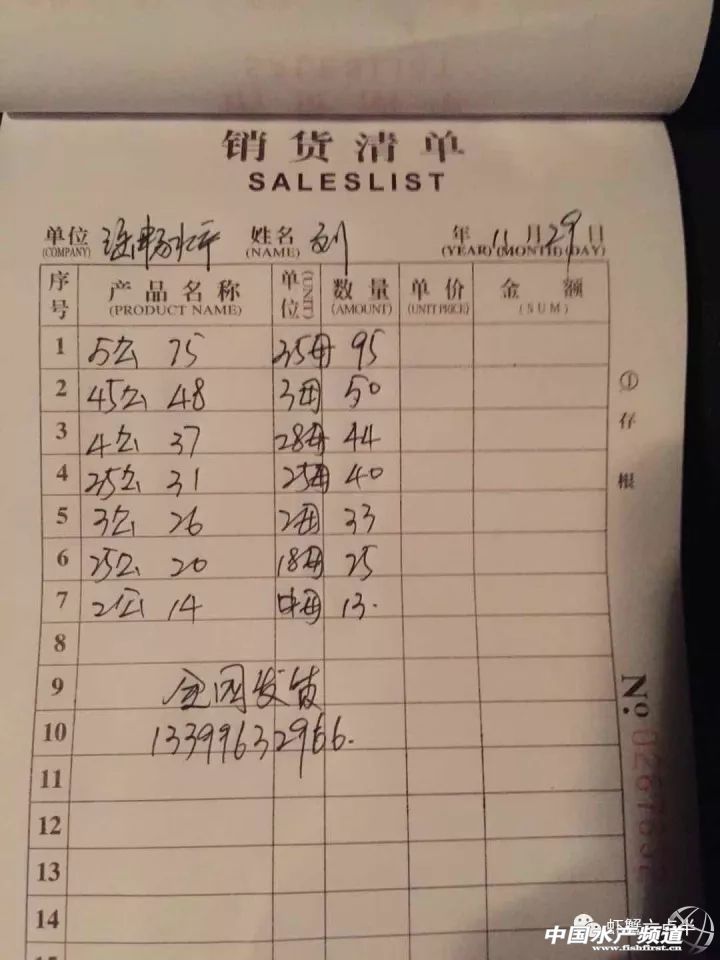 销货清单
SALESLIST
单位 姓名 刘 年 11 月 29 日
(COMPANY) (NAME) (YEAR) (MONTH) (DAY)
序号 产品名称 单位 数量 单价 金额
(PRODUCT NAME) (UNIT) (AMOUNT) (UNIT PRICE) (SUM)
1 5公 75 35母 95
2 45公 48 3母 50
3 4公 37 28母 44
4 35公 31 25母 40
5 3公 26 2母 33
6 25公 20 18母 25
7 2公 14 中母 13.
8
9 全国发货
10 13399632966.
11
12
13
14
①存根
No.
虾蟹六点半
中国水产频道
www.fishfirst.cn